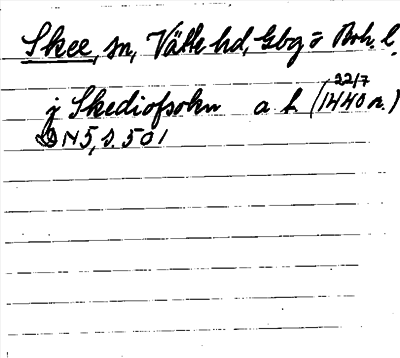 Skee, sn, Vätte hd, Gbg o Boh. l.
j Skediofsokn a. h. (22/7 1440 n.)
DN 5, s. 501